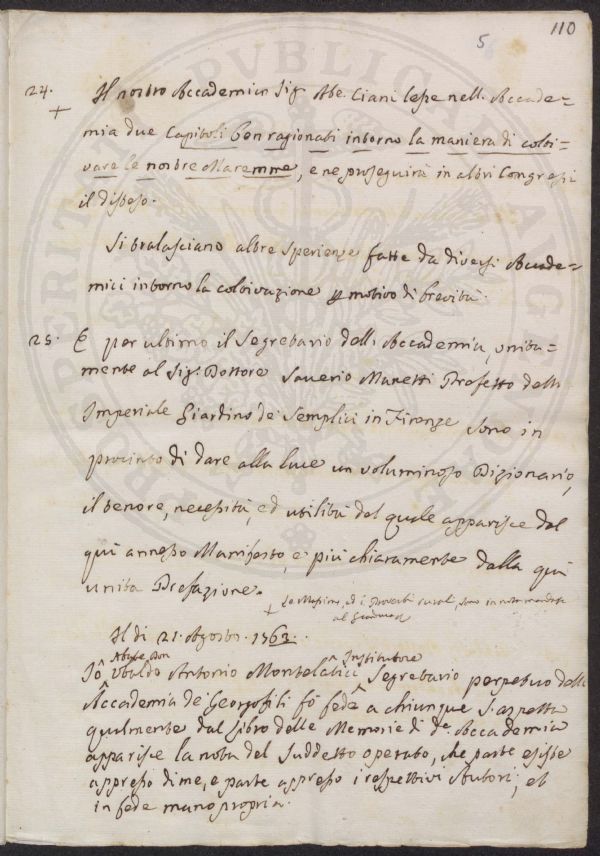 110
5
24. Il nostro Accademico Sig.r Abe. Ciani lesse nell. Accade=
+
mia due Capitoli ben ragionati intorno la maniera di colti=
vare le nostre Maremme, e ne proseguirà in altri Congressi
il disteso.
Si tralasciano altre Sperienze fatte da diversi Accade=
mici intorno la coltivazione p motivo di brevità.
25. E per ultimo il Segretario dell. Accademia, unita=
mente al Sig.r Dottore Saverio Manetti Prefetto dell
Imperiale Giardino de' Semplici in Firenze sono in
procinto di dare alla luce un voluminoso Dizionario,
il tenore, necessità, ed utilità del quale apparisce dal
quì annesso Manifesto, e più chiaramente dalla quì
unita Prefazione.
+ Le Massime, ed i Proverbi rurali, sono in
al
Il di 21. Agosto. 1763.
Abate Don Institutore
Iô Ubaldo Antonio Montelatici Segretario perpetuo dell
Accademia de' Georgofili fô fede a chiunque s'aspetta
qualmente dal Libro delle Memorie di d.a Accademia
apparisce la nota del suddetto operato, che parte esiste
appresso di me, e parte appresso i respettivi Autori; et
in fede mano propria.